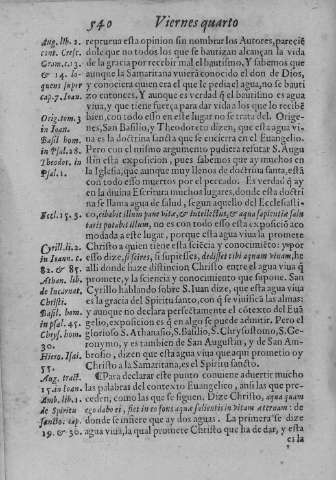 540 Viernes quarto
Aug. lib. 1. reprueua esta opinion sin nombrar los Autores, pareciẽ
cont. Cresc. dole que no todos los que se bautizan alcançan la vida
Gram. c. 13. de la gracia por recebir mal el bautismo, Y sabemos que
& 14. lo- aunque la Samaritana vuiera conocido el don de Dios,
quens super y conociera quien era el que le pedia el agua, no se bauti
cap. 7. Ioan. zo entonces, Y aunque es verdad q̃ el bautismo es agua
viua, y que tiene fuerça para dar vida a los que lo recibẽ
Orig. tom. 3 bien, con todo esso en este lugar no se trata del. Orige-
in Ioan. nes, San Basilio, y Theodoreto dizen, que esta agua vi-
Basil hom. ua es la doctrina sancta que se encierra en el Euangelio.
in Psal. 28. Pero con el mismo argumento pudiera refutar S. Augu
Theodor. in stin esta exposicion, pues sabemos que ay muchos en
Psal. 1. la Iglesia, que aunque muy llenos de doctrina santa, està
con todo esso muertos por el peccado. Es verdad q̃ ay
en la diuina Escritura muchos lugares, donde esta doctri
na se llama agua de salud, segun aquello del Ecclesiasti-
Eccl. 15. 3. co, cibabit illum pane vitæ, & intellectus, & aqua sapientiæ salu
taris potabit illum, no es con todo esso esta exposiciõ aco
modada a este lugar, porque esta agua viua la promete
Cyrill. li. 2. Christo a quien tiene esta sciẽcia y conocimiẽto; ypor
in Ioann. c. esso dize, si scires, si supiesses, dedisset tibi aquam viuam, he
82. & 85. alli donde haze distinction Christo entre el agua viua q̃
Athan. lib. promete, y la sciencia y conocimiento que supone. San
de Incarnat. Cyrillo hablando sobre S. Iuan dize, que esta agua viua
Christi. es la gracia del Spiritu santo, con q̃ se viuifica las almas:
Basil. hom. y aunque no declara perfectamente el cõtexto del Euã
in psal. 45. gelio, exposicion es q̃ en algo se puede admitir. Pero el
Chrys. hom. glorioso S. Athanasio, S. Basilio, S. Chrysostomo, S. Ge-
30. ronymo, y es tambien de San Augustin, y de San Am-
Hiero. Isai. brosio, dizen que esta agua viua que aqui prometio oy
55. Christo a la Samaritana, es el Spiritu sancto.
Aug. tract. ¶ Para declarar este punto conuiene aduertir mucho
15. in Ioan. las palabras del contexto Euangelico, ansi las que pre-
Amb. lib. 1. ceden, como las que se siguen. Dize Christo, aqua quam
de Spiritu ego dabo ei, fiet in eo fons aquæ salientis in vitam æternam: de
sancto. cap. donde se infiere que ay dos aguas. La primera se dize
19. & 30. agua viua, la qual promete Christo que ha de dar, y esta
es la